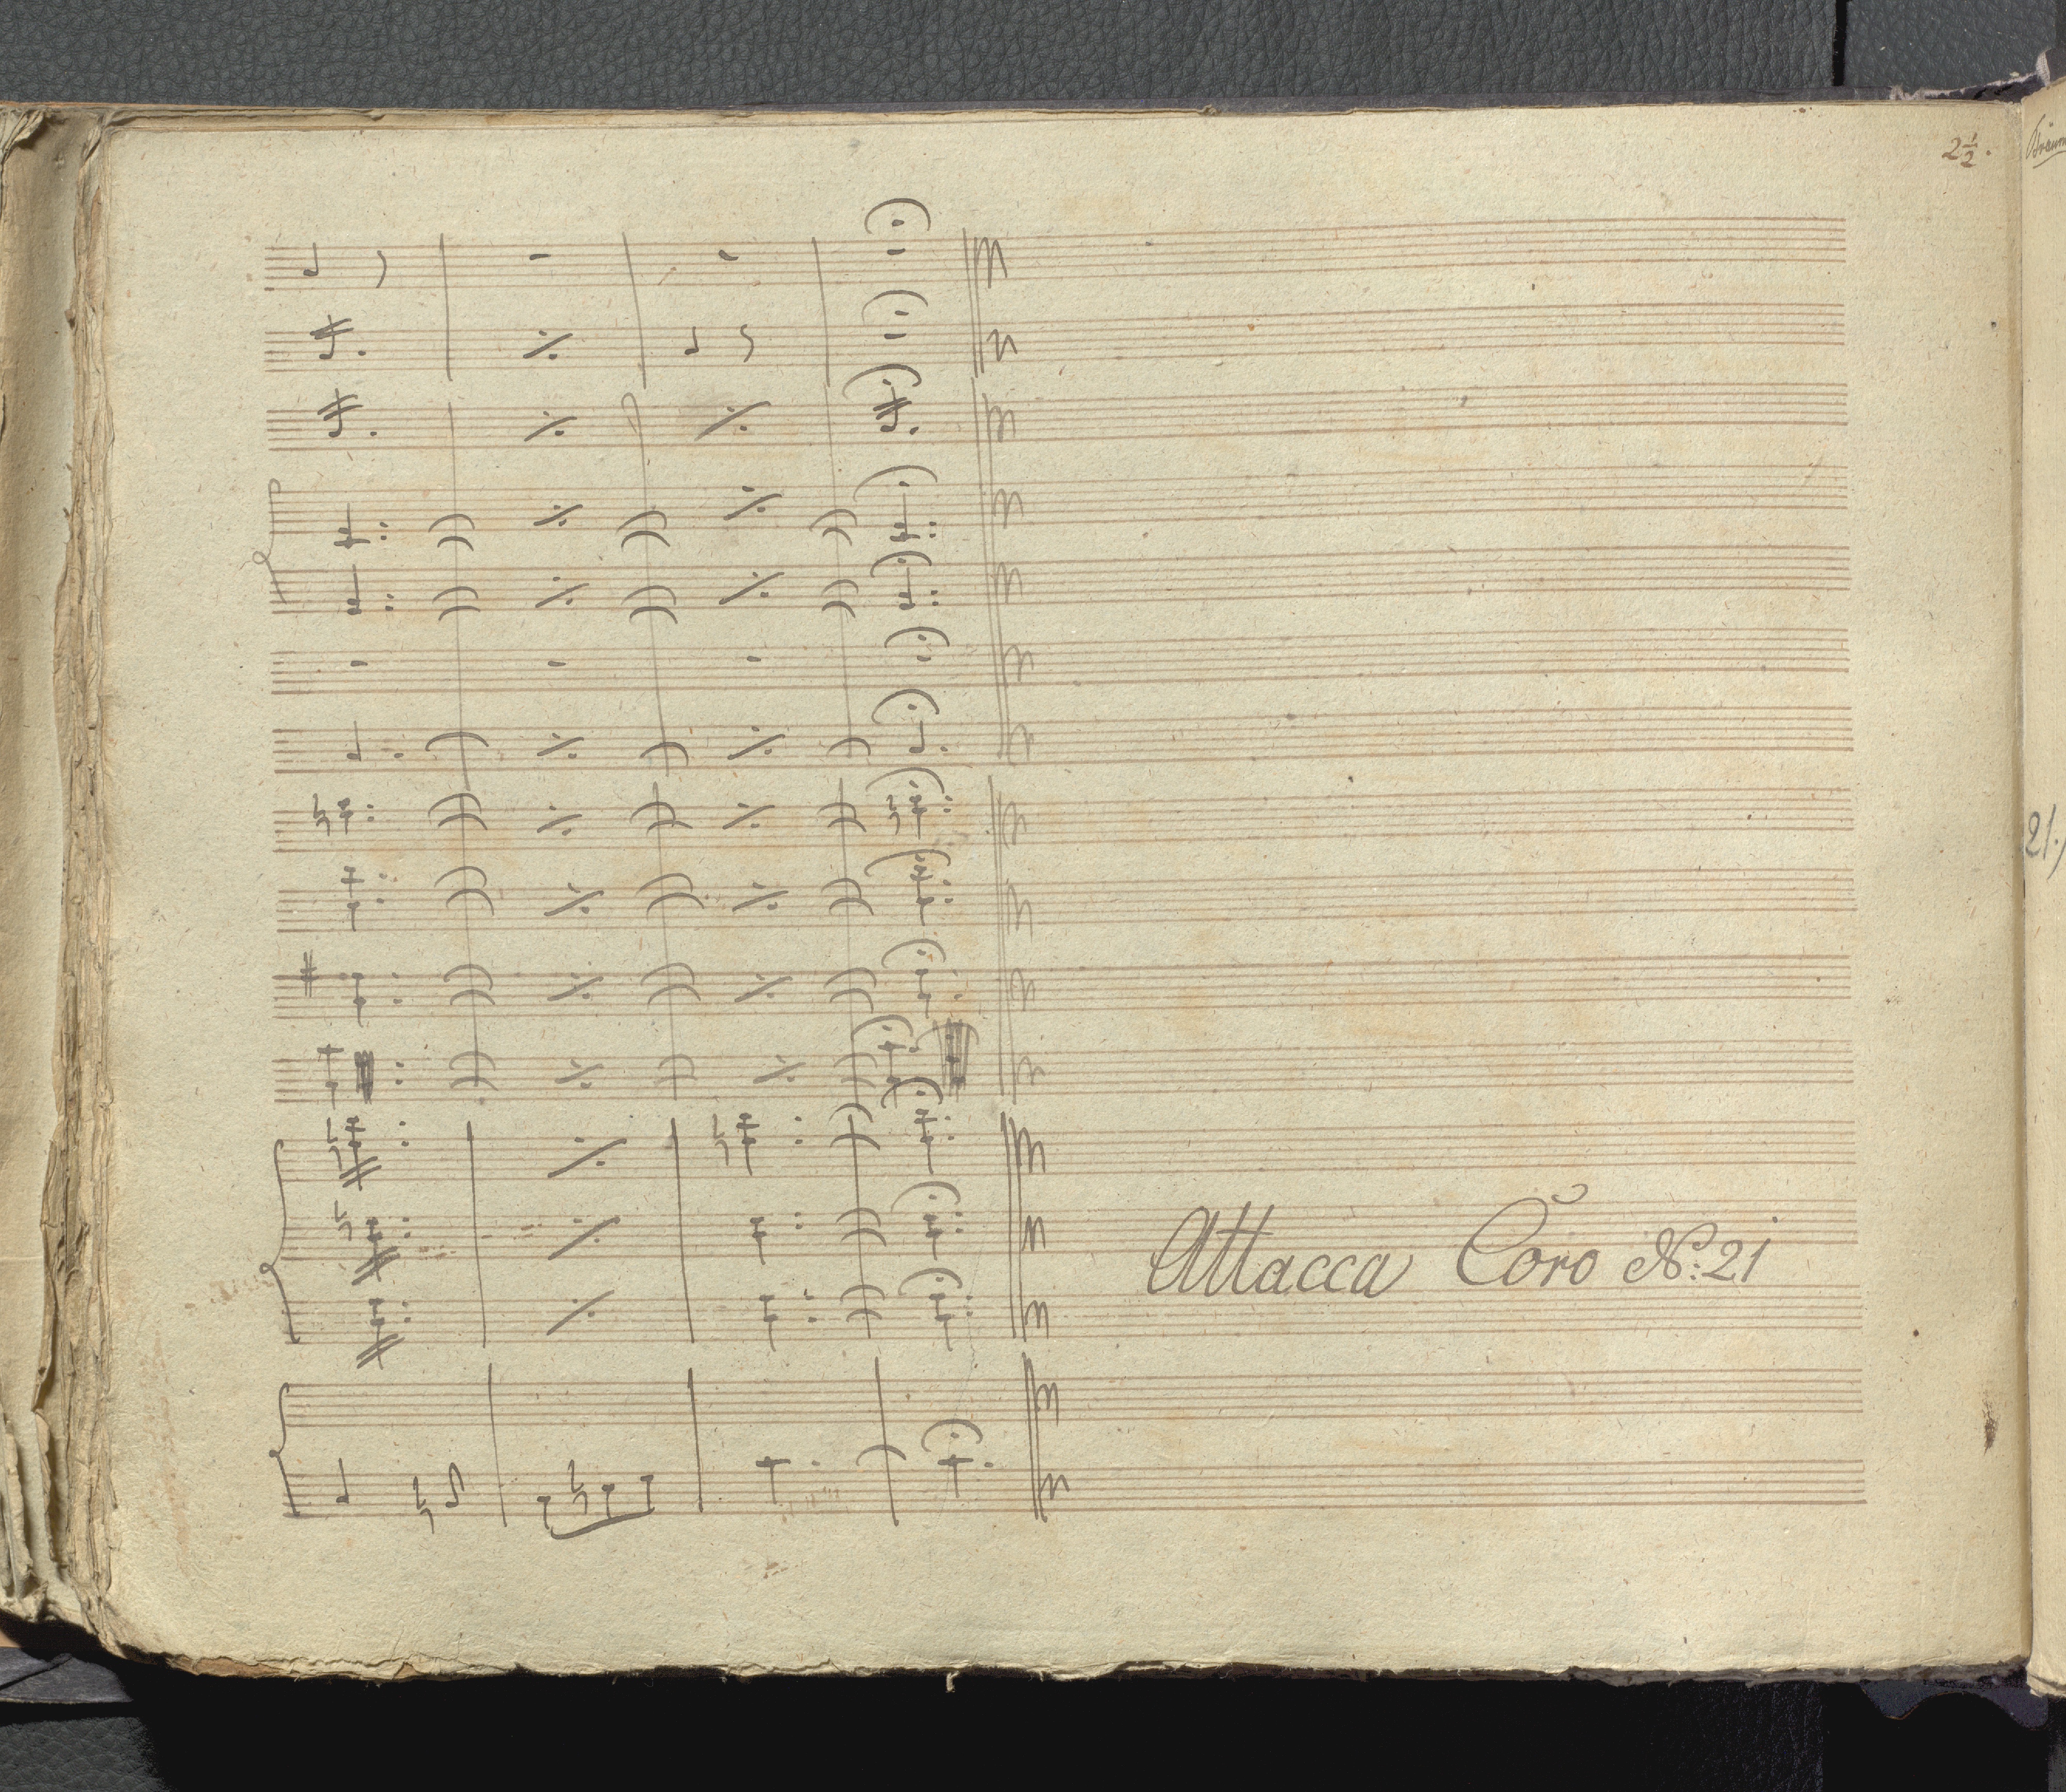 2½.
21.)
Attacca Coro No: 21